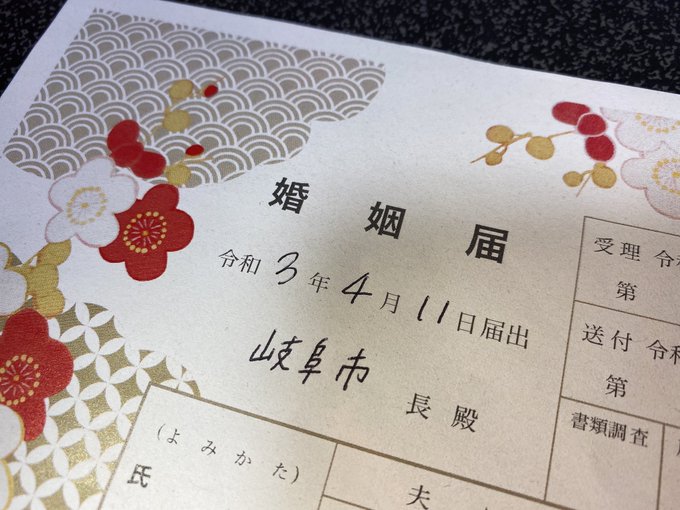 婚姻届
令和3年4月11日届出
岐阜市
長殿
受理 令和
第
送付 令和
第
書類調査
(よみかた)
氏
夫